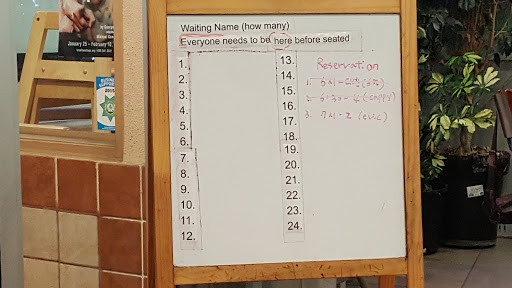 Waiting Name (how many)
Everyone needs to be here before seated
1.
2.
3.
4.
5.
6.
7.
8.
9.
10.
11.
12.
13.
14.
15.
16.
17.
18.
19.
20.
21.
22.
23.
24.
Reservation
1.
2. 6:30 - 4
3. 7시 - 2
January 25 - February 13
2015